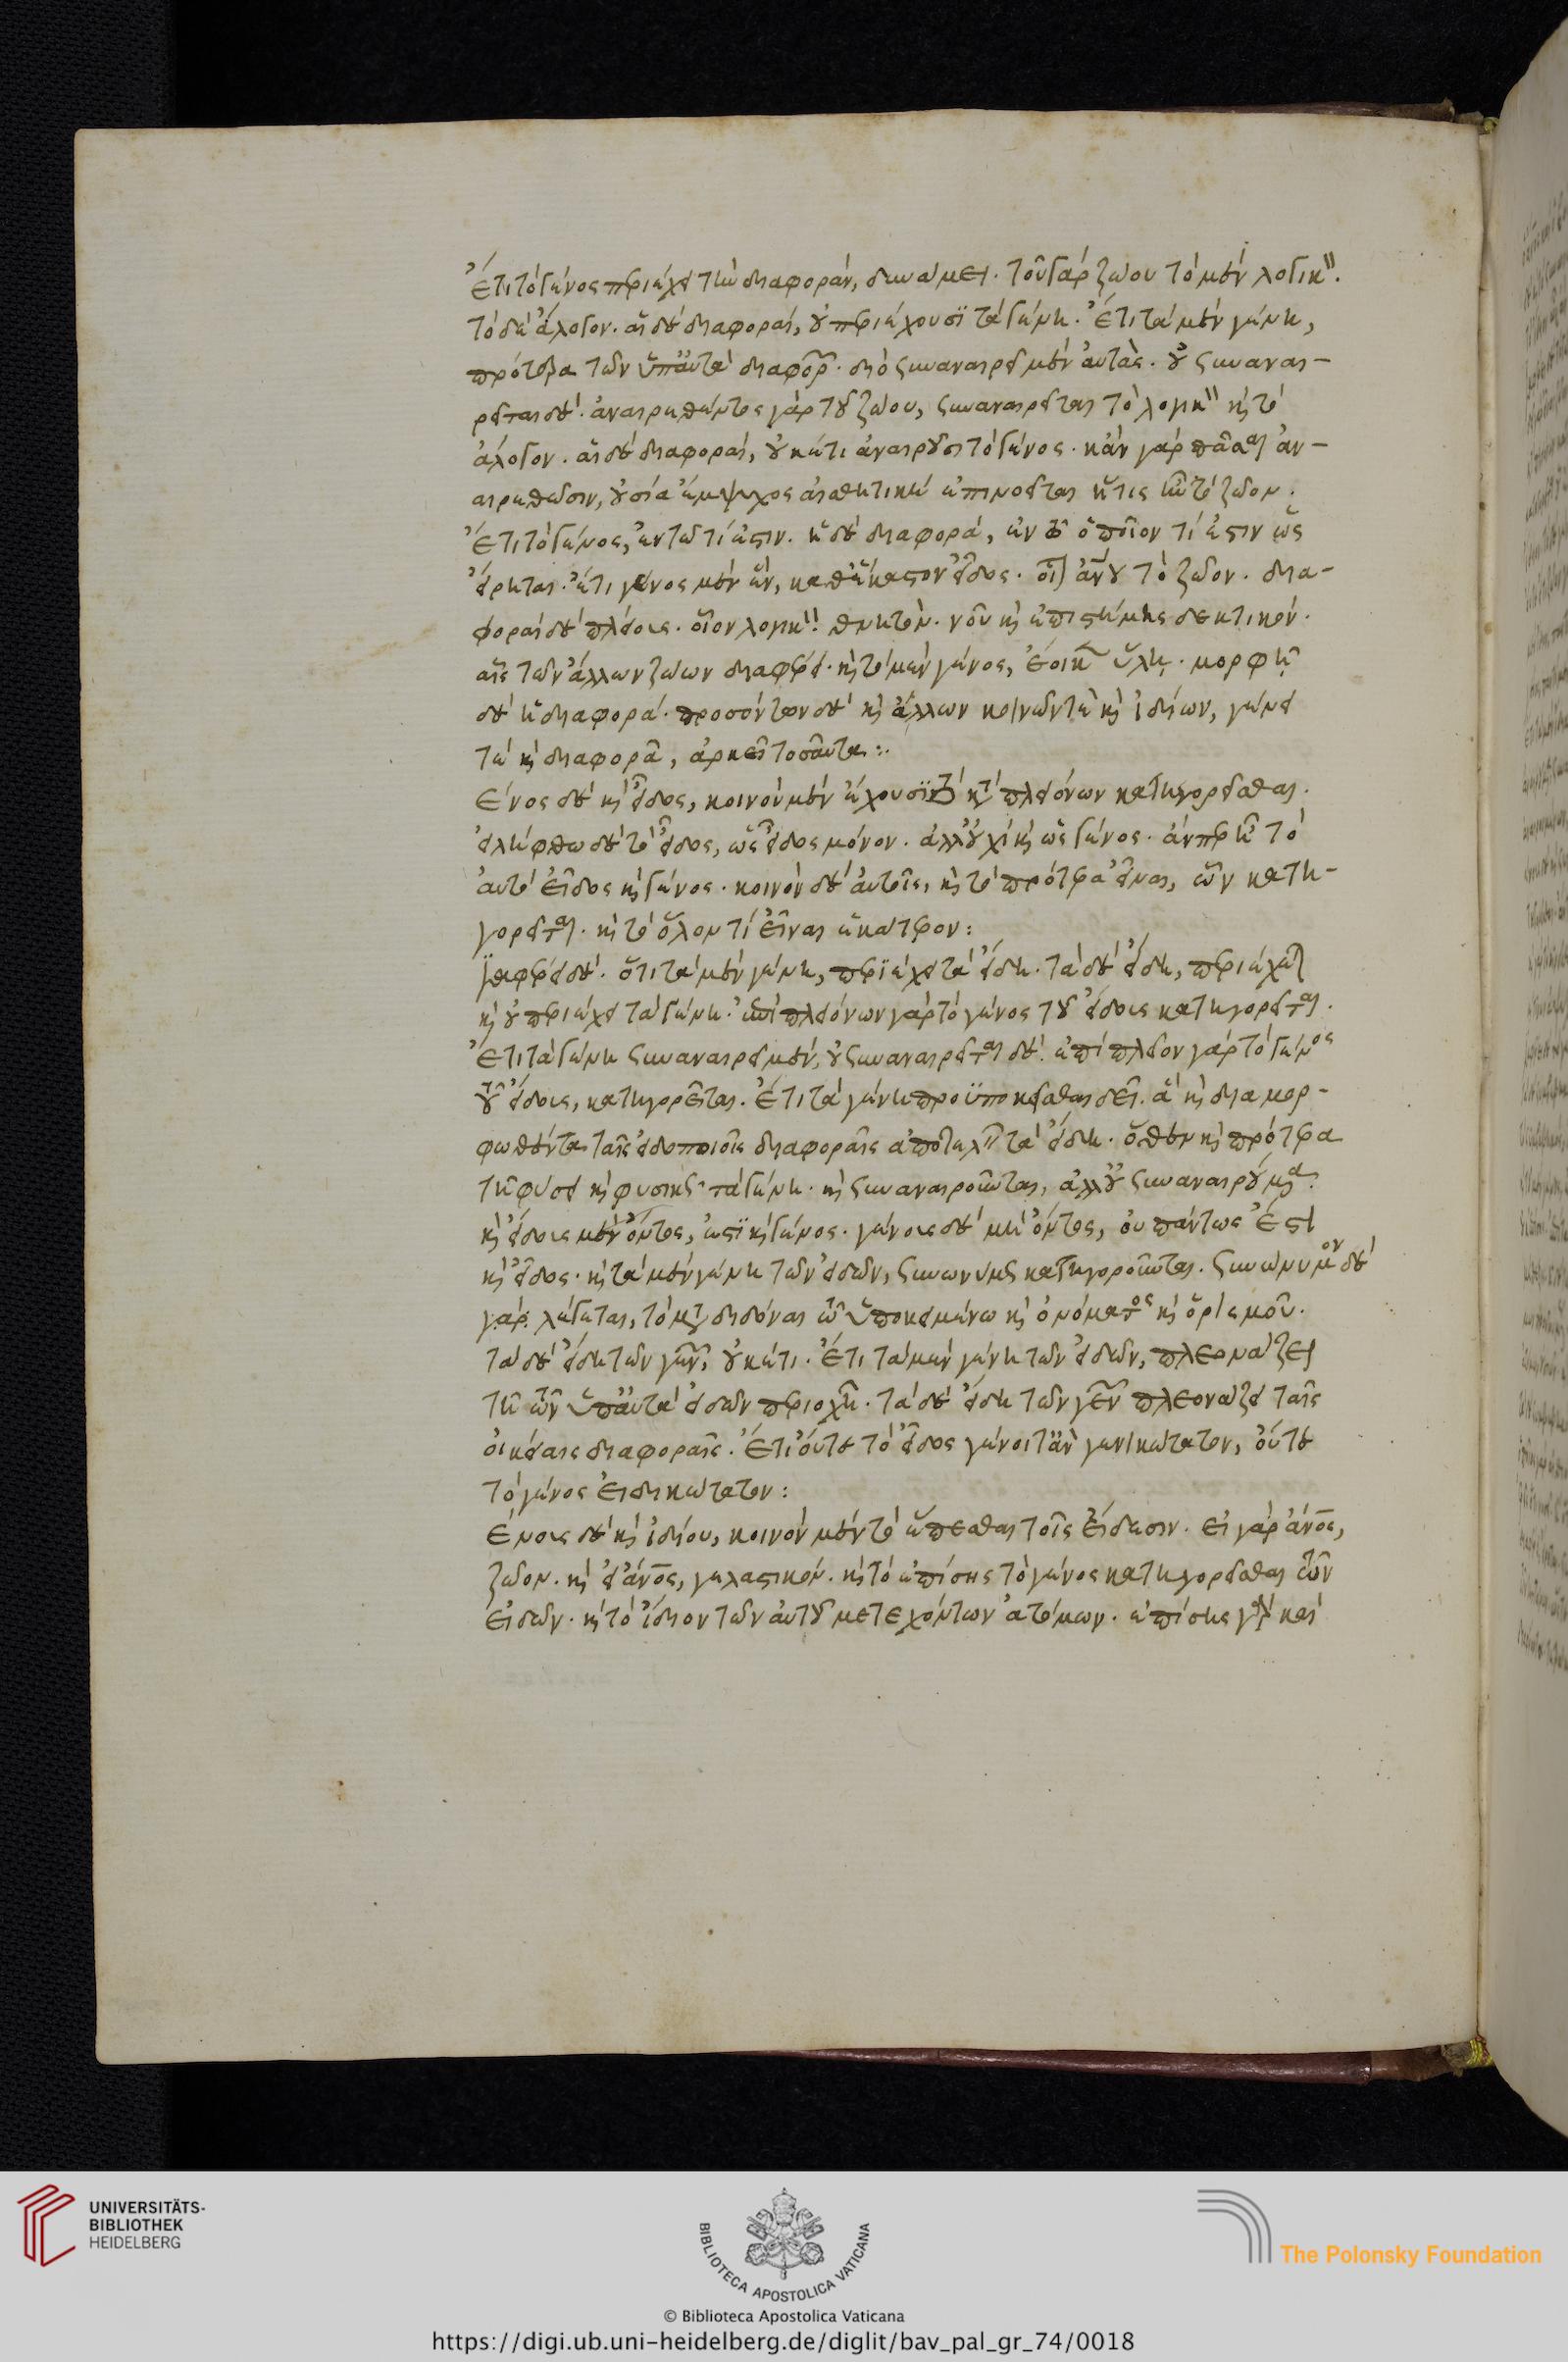 Ἔτι τὸ γένος περιέχει τὴν διαφορὰν, δυνάμει. τοῦ γὰρ ζώου τὸ μὲν λογικὸν.
τὸ δὲ ἄλογον. αἱ δὲ διαφοραὶ, οὐ περιέχουσϊ τὰ γένη. Ἔτι τὰ μὲν γένη,
πρότερα τῶν ὑπ' αὐτὰ διαφορῶν. διὸ συναναιρεῖ μὲν αὐτὰς. οὐ συναναι-
ρεῖται δὲ. ἀναιρεθέντος γὰρ τοῦ ζώου, συναναιρεῖται τὸ λογικὸν καὶ τὸ
ἄλογον. αἱ δὲ διαφοραὶ, οὐκέτι ἀναιροῦσι τὸ γένος. κἂν γὰρ πᾶσαι ἀν-
αιρεθῶσιν, οὐσία ἔμψυχος αἰσθητικὴ ἐπινοεῖται ἥτις ἦν τὸ ζῶον.
Ἔτι τὸ γένος, ἐν τῷ τί ἐστιν. ἡ δὲ διαφορὰ, ἐν τῷ ὁποῖον τί ἐστιν ὡς
εἴρηται. ἔτι γένος μὲν ἓν, καθ' ἕκαστον εἶδος. οἷον ἀνθρώπου τὸ ζῶον. δια-
φοραὶ δὲ πλείους. οἷον λογικὸν. θνητὸν. νοῦ καὶ ἐπιστήμης δεκτικόν.
αἷς τῶν ἄλλων ζώων διαφέρει. καὶ τὸ μὲν γένος, ἔοικεν ὕλῃ. μορφῇ
δὲ ἡ διαφορά. προσόντων δὲ καὶ ἄλλων κοινῶν τὲ καὶ ἰδίων, γένει
τὲ καὶ διαφορᾷ, ἀρκεῖ τοσαῦτα:.
Ένος δὲ καὶ εἶδος, κοινὸν μὲν ἔχουσϊ τὸ κατὰ πλειόνων κατηγορεῖσθαι.
εἰλήφθω δὲ τὸ εἶδος, ὡς εἶδος μόνον. ἀλλ' οὐχὶ καὶ ὡς γένος. ἄνπερ ᾖ τὸ
αὐτὸ εἶδος καὶ γένος. κοινὸν δὲ αὐτοῖς, καὶ τὸ πρότερα εἶναι, ὧν κατη-
γορεῖται. καὶ τὸ ὅλον τί εἶναι ἑκάτερον:
ϊαφέρει δὲ. ὅτι τὰ μὲν γένη, περϊέχει τὰ εἴδη. τὰ δὲ εἴδη, περιέχεται
καὶ οὐ περιέχει τὰ γένη. ἐπὶ πλειόνων γὰρ τὸ γένος τοῦ εἴδους κατηγορεῖται.
Ἔτι τὰ γένη συναναιρεῖ μὲν, οὐ συναναιρεῖται δὲ. ἐπὶ πλεῖον γὰρ τὸ γένος
τοῦ εἴδους, κατηγορεῖται. Ἔτι τὰ γένη προϋποκεῖσθαι δεῖ. ἃ καὶ διαμορ-
φωθέντα ταῖς εἰδοποιοῖς διαφοραῖς ἀποτελεῖ τὰ εἴδη. ὅθεν καὶ πρότερα
τῇ φύσει καὶ φυσικῶς τὰ γένη. καὶ συναναιροῦντα, ἀλλ' οὐ συναναιρούμενα.
καὶ εἴδους μὲν ὄντος, ἔστϊ καὶ γένος. γένους δὲ μὴ ὄντος, οὐ πάντως ἔστι
καὶ εἶδος. καὶ τὰ μὲν γένη τῶν εἰδῶν, συνωνύμως κατηγοροῦνται. συνώνυμον δὲ
γὰρ λέγεται, τὸ μεταδιδόναι τῷ ὑποκειμένω καὶ ὀνόματος καὶ ὁρισμοῦ.
τὰ δὲ εἴδη τῶν γενῶν, οὐκέτι. Ἔτι τὰ μὲν γένη τῶν εἰδῶν, πλεονάζει
τῇ τῶν ὑπ' αὐτὰ εἰδῶν περιοχῇ. τὰ δὲ εἴδη τῶν γενῶν πλεονάζει ταῖς
οἰκείαις διαφοραῖς. Ἔτι οὔτε τὸ εἶδος γένοιτ' ἂν γενικώτατον, οὔτε
τὸ γένος εἰδικώτατον:
Ένους δὲ καὶ ἰδίου, κοινὸν μὲν τὸ ἕπεσθαι τοῖς εἴδεσιν. εἰ γὰρ ἄνος,
ζῶον. καὶ εἰ ἄνος, γελαστικόν. καὶ τὸ ἐπίσης τὸ γένος κατηγορεῖσθαι τῶν
εἰδῶν. καὶ τὸ ἴδιον τῶν αὐτοῦ μετεχόντων ἀτόμων. ἐπίσης γὰρ καὶ
UNIVERSITÄTS-
BIBLIOTHEK
HEIDELBERG
BIBLIOTECA APOSTOLICA VATICANA
The Polonsky Foundation
© Biblioteca Apostolica Vaticana
https://digi.ub.uni-heidelberg.de/diglit/bav_pal_gr_74/0018